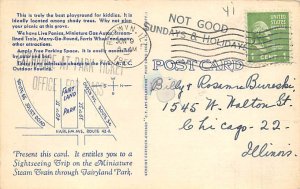 This is truly the best playground for kiddies. It is
ideally located among shady trees. Why not plan
your picnic on this grove?
We have Live Ponies, Miniature Gas Autos, Stream-
lined Train, Merry-Go-Round, Ferris Wheel and many
other attractions.
Ample Free Parking Space. It is easily reached
Outdoor Roulind.
FAIRY
LAND
PARK
HARLEM AVE. ROUTE 42-A
Present this card. It entitles you to a
Sightseeing Trip on the Miniature
Steam Train through Fairyland Park.
41
NOT GOOD
SUNDAYS & HOLIDAYS
1 CENT
POST CARD
Billy & Rosena Bureski
1545 W. Walton St.
Chicago-22-
Illinois.